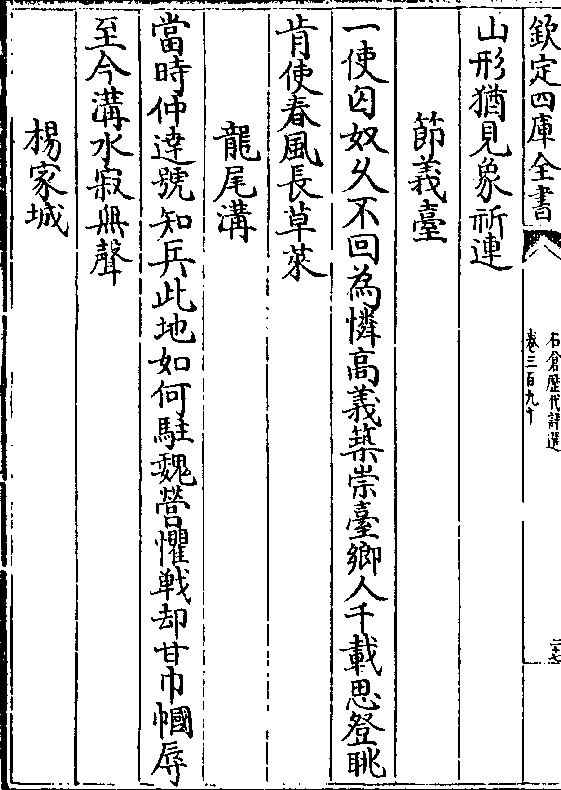 欽定四庫全書
石倉歷代詩選
卷三百九十
二十七
山形猶見象祈連
節義臺
一使匈奴久不回為憐高義築崇臺鄉人千載思登眺
肯使春風長草萊
龍尾溝
當時仲達號知兵此地如何駐魏營懼戰却甘巾幗辱
至今溝水寂無聲
楊家城